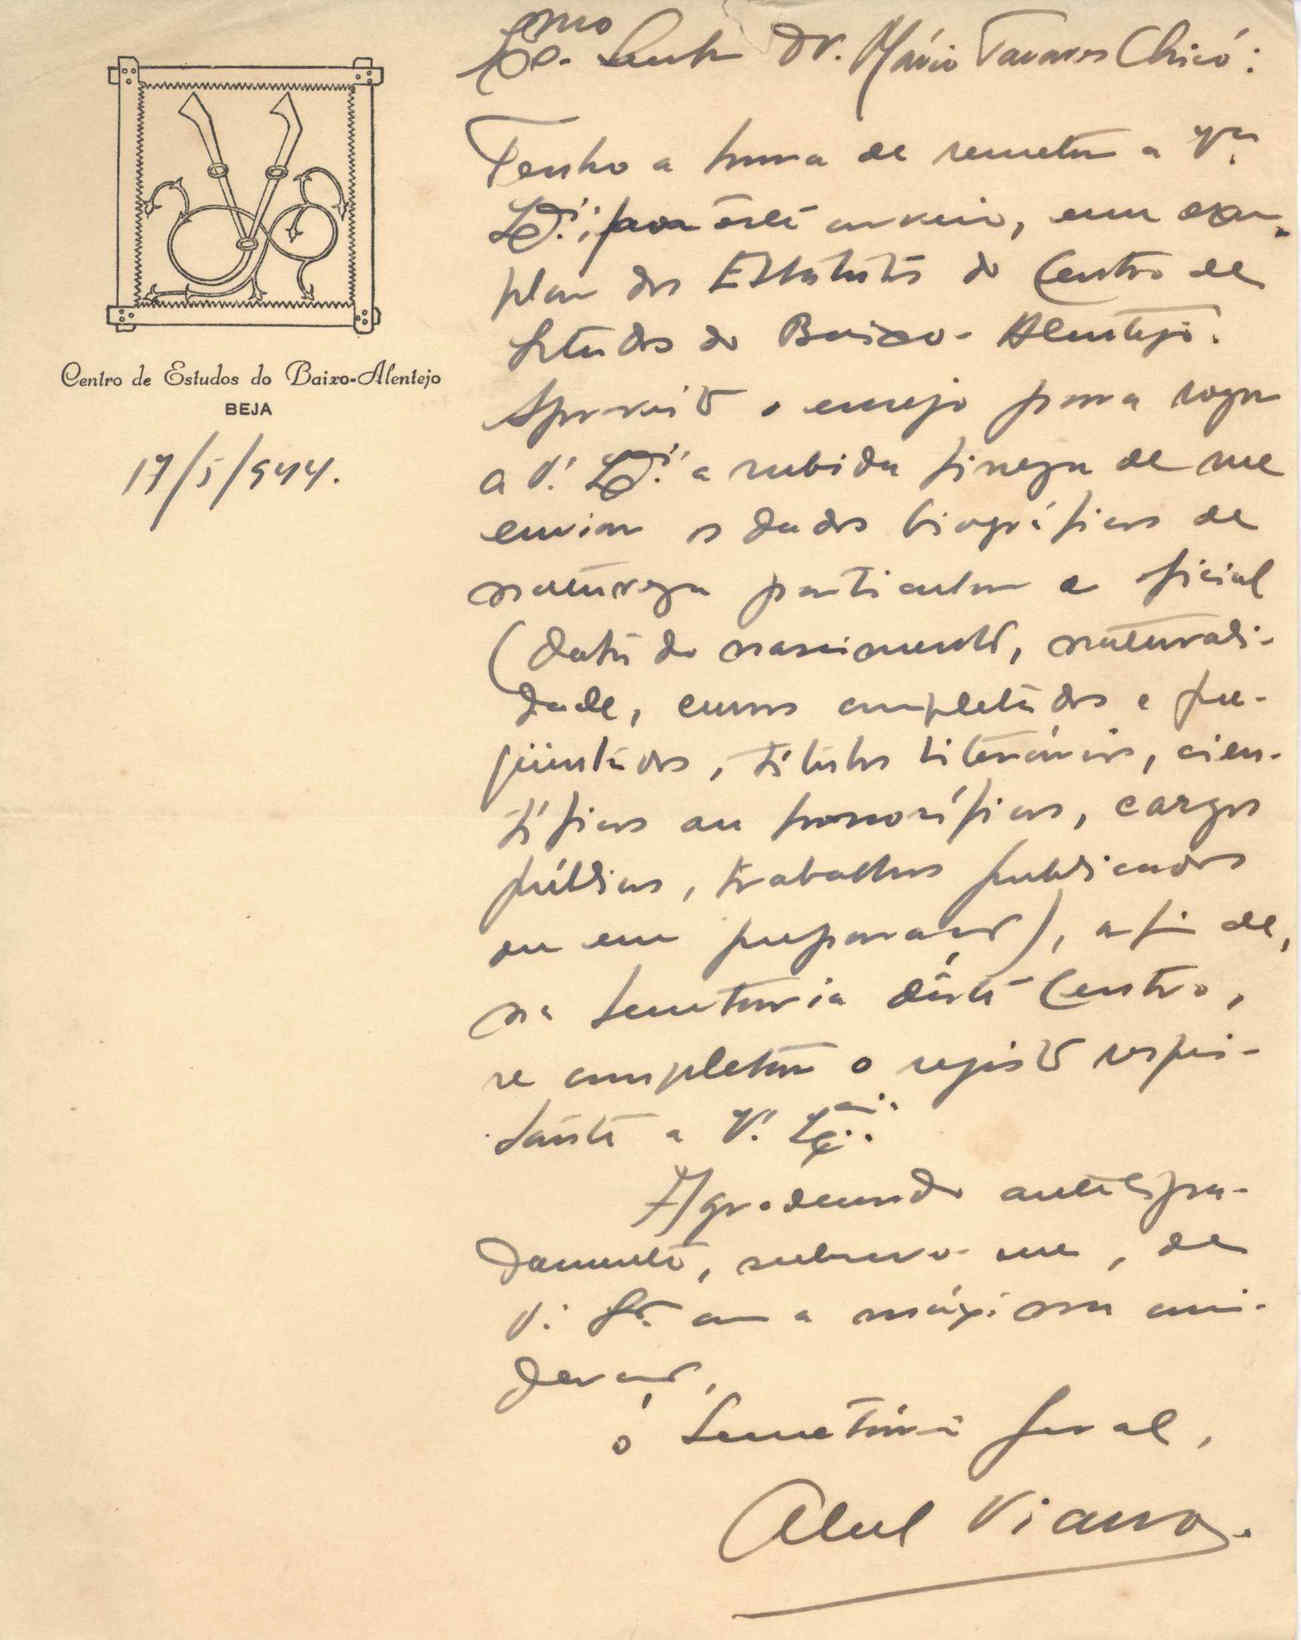 Ex.mo Senhor Dr. Mário Tavares Chicó:
Tenho a honra de remeter a V.a
Ex.ª, por êste correio, um exem-
plar dos Estatutos do Centro de
Estudos do Baixo-Alentejo.
Aproveito o ensejo para rogar
a V. Ex.ª a subida fineza de me
enviar os dados biográficos de
natureza particular e oficial
(data do nascimento, naturali-
dade, cursos completados e fre-
qüentados, títulos literários, cien-
tíficos ou honoríficos, cargos
públicos, trabalhos publicados
ou em preparação), a fim de,
na Secretaria dêste Centro,
se completar o registo respei-
tante a V. Ex.ª.
Agradecendo antecipa-
damente, subscrevo-me, de
V. Ex.ª com a máxima consi-
deração,
O Secretário Geral,
Abel Viana.
Centro de Estudos do Baixo-Alentejo
BEJA
17/5/944.